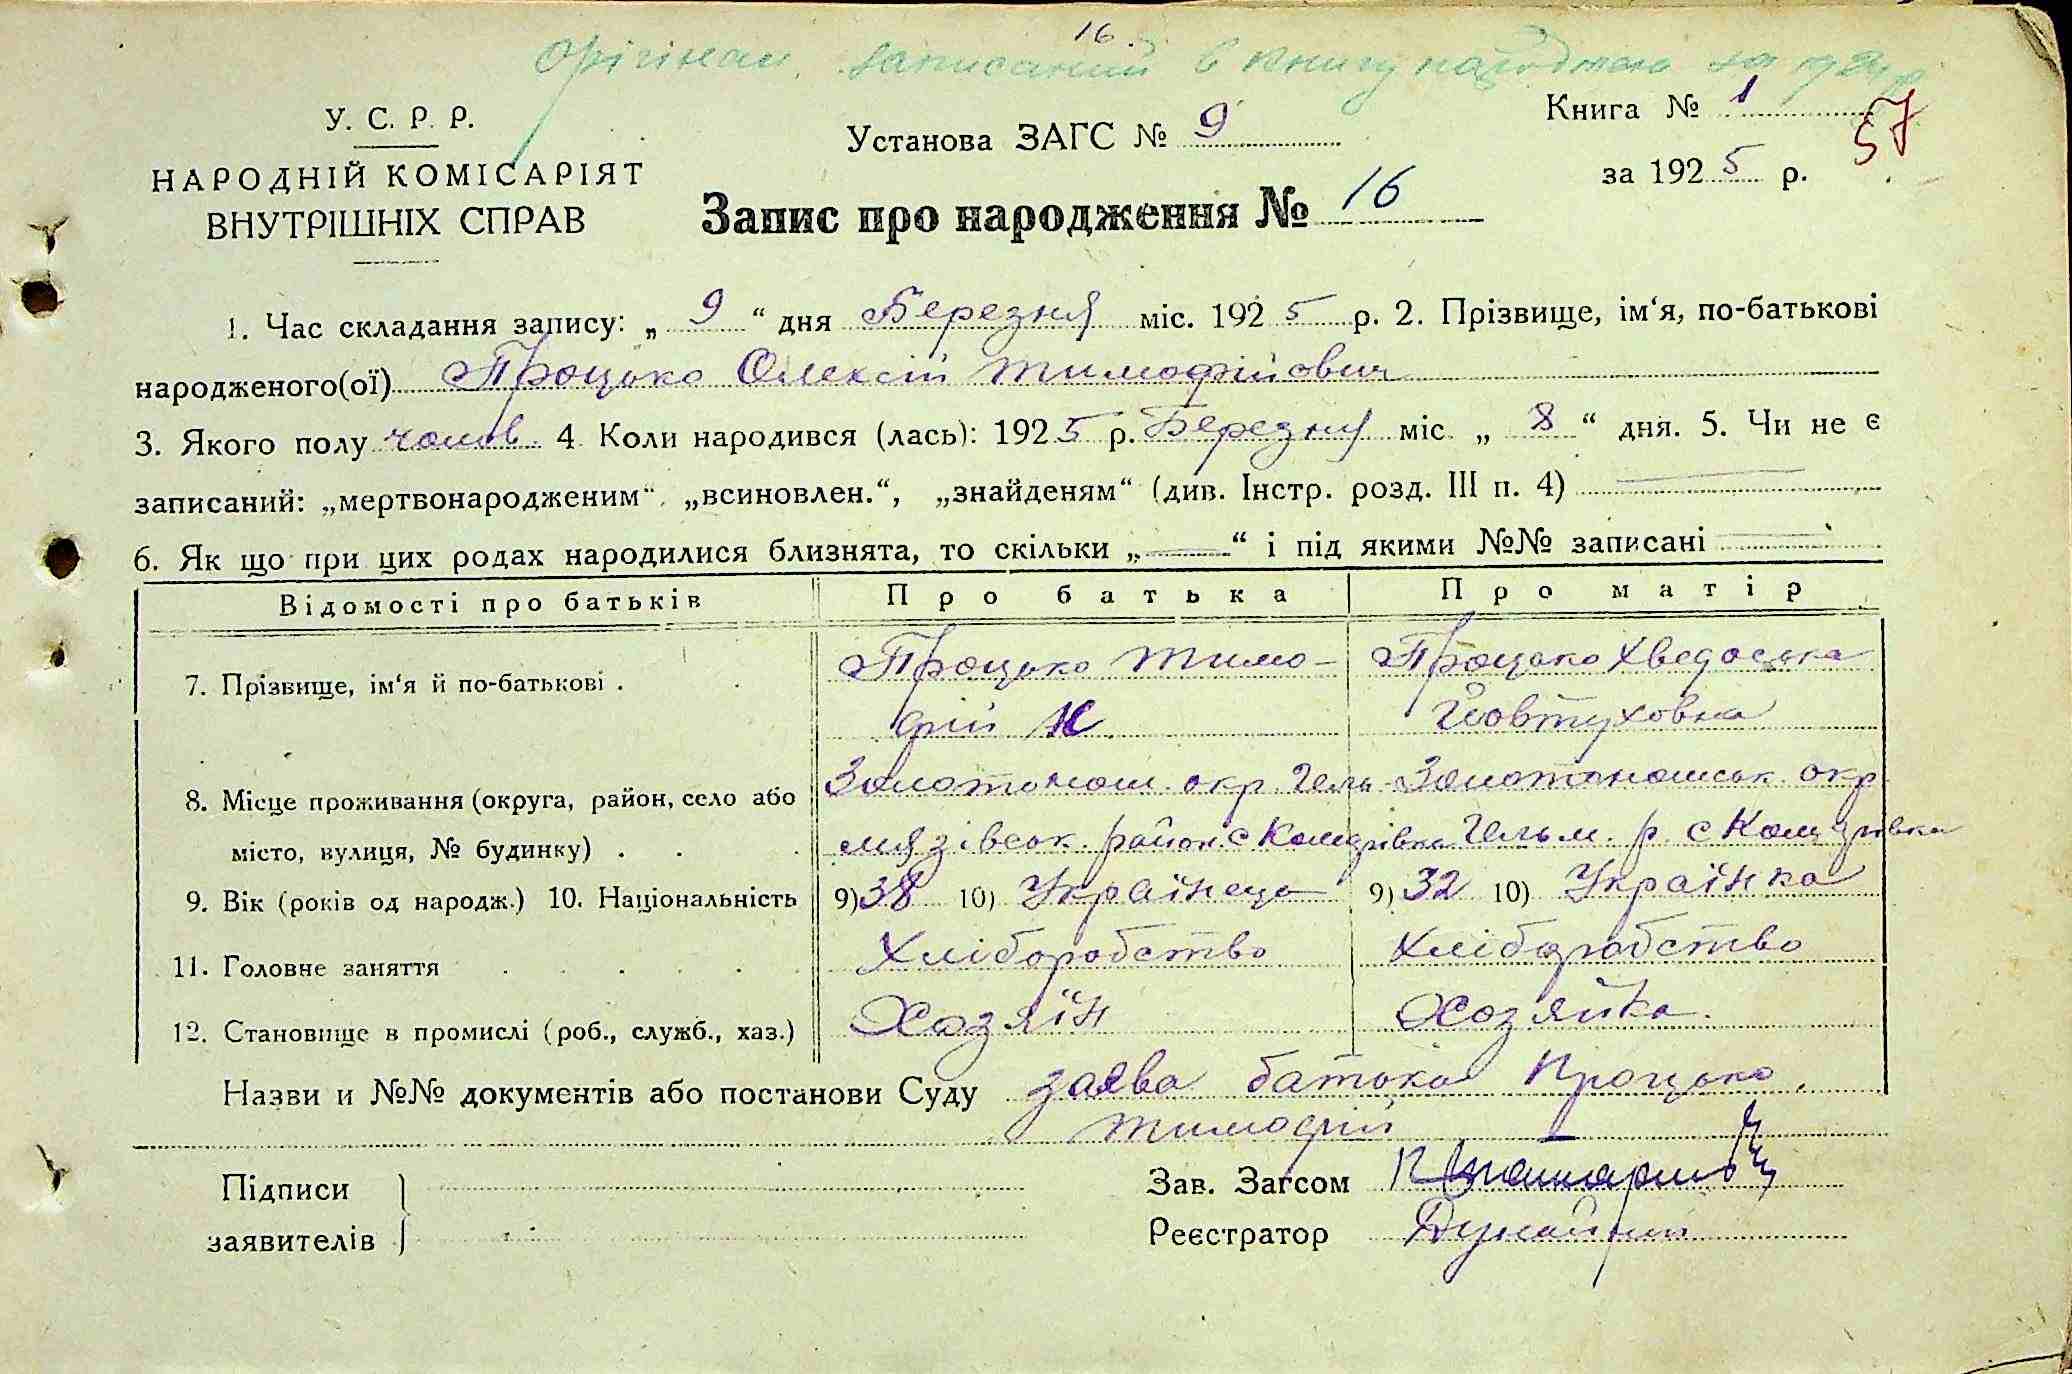 16.
Орігінал записаний в книгу народжень за 1924 р
У. С. Р. Р.
НАРОДНІЙ КОМІСАРІЯТ
ВНУТРІШНІХ СПРАВ
Установа ЗАГС № 9
Книга № 1
за 1925 р.
57
Запис про народження № 16
1. Час складання запису: „ 9 “ дня Березня міс. 1925 р. 2. Прізвище, ім‘я, по-батькові
народженого(ої) Процько Олексій Тимофійович
3. Якого полу чолов. 4 Коли народився (лась): 1925 р. Березня міс. „ 8 “ дня. 5. Чи не є
записаний: „мертвонародженим“, „всиновлен.“, „знайденям“ (див. Інстр. розд. III п. 4) —
6. Як що при цих родах народилися близнята, то скільки „—“ і під якими №№ записані —
Відомості про батьків Про батька Про матір
7. Прізвище, ім‘я й по-батькові . Процько Тимо- Процько Хведоська
фій Йовтуховна
8. Місце проживання (округа, район, село або Золотонош. окр. Гель- Золотоношськ. окр
місто, вулиця, № будинку) . мязівськ. район. с Комарівка Гельм. р. с Комарівка
9. Вік (років од народж.) 10. Національність 9) 38 10) Українець 9) 32 10) Українка
11. Головне заняття Хліборобство Хліборобство
12. Становище в промислі (роб., служб., хаз.) Хозяїн Хозяйка.
Назви и №№ документів або постанови Суду заява батька Процько
Тимофій
Підписи
заявителів
Зав. Загсом
Реєстратор